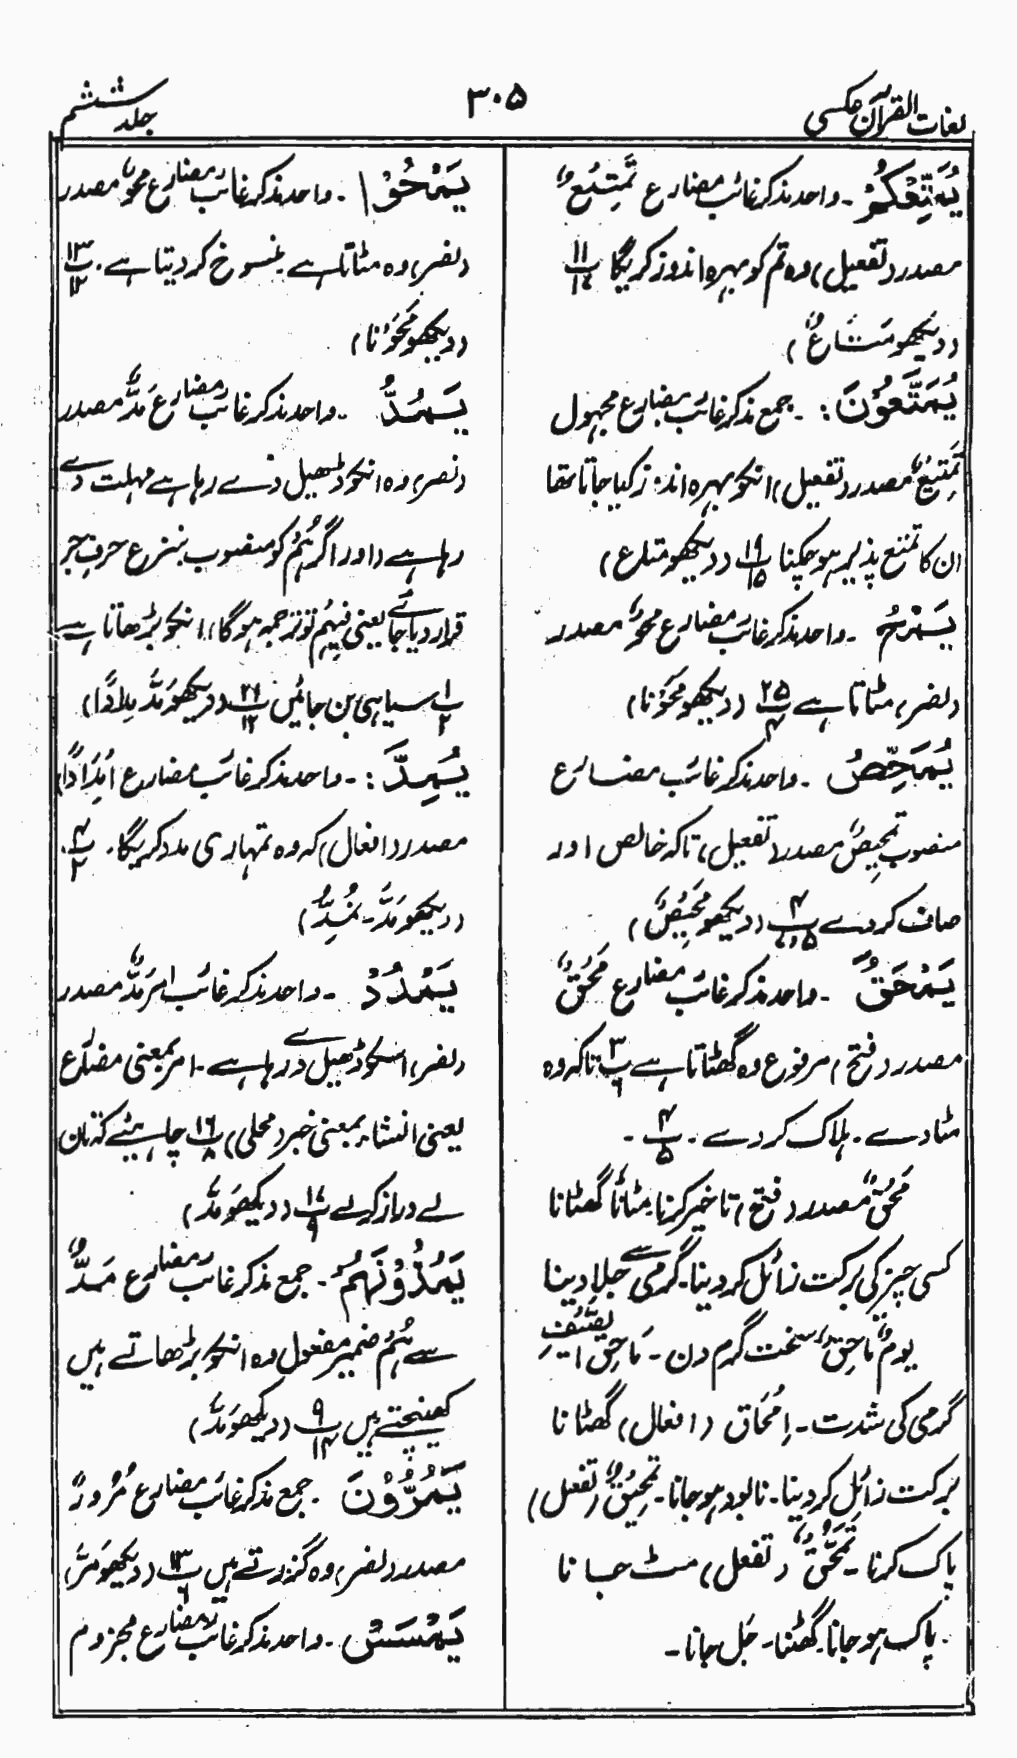 لغات القرآن عکسی
۳۰۵
جلد ششم
یُمَتِّعْکُمْ ۔ واحد مذکر غائب مضارع تَمْتِیْعٌ
مصدر (تفعیل) وہ تم کو بہرہ اندوز کریگا ۱۱/۱۷
(دیکھو مَتَاعٌ)
یُمَتَّعُوْنَ: ۔ جمع مذکر غائب مضارع مجہول
تَمْتِیْعٌ مصدر (تفعیل) انکو بہرہ اندوز کیا جاتا تھا
ان کا تمتع پذیر ہو چکنا ۱۹/۱۵ (دیکھو متاع)
یَمْحُ ۔ واحد مذکر غائب مضارع مَحْوٌ مصدر
(نصر) مٹاتا ہے ۲۵/۴ (دیکھو مَحَوْنَا)
یُمَحِّصُ ۔ واحد مذکر غائب مضارع
منصوب تَمْحِیْصٌ مصدر (تفعیل) تاکہ خالص اور
صاف کردے ۴/۵،۷ (دیکھو مَحِیْصٌ)
یَمْحَقُ ۔ واحد مذکر غائب مضارع مَحْقٌ
مصدر (فتح) مرفوع وہ گھٹاتا ہے ۳/۶ تاکہ وہ
مٹا دے ۔ ہلاک کر دے ۔ ۴/۵ ۔
مَحْقٌ مصدر (فتح) تاخیر کرنا۔ مٹانا گھٹانا
کسی چیز کی برکت زائل کر دینا۔ گرمی سے جلا دینا
یومٌ مَاحِقٌ سخت گرم دن ۔ مَاحِقُ الصَّیْفِ
گرمی کی شدت ۔ اِمْحَاق (افعال) گھٹانا
برکت زائل کر دینا ۔ نابود ہو جانا ۔ تَمْحِیْقٌ (تفعل)
پاک کرنا ۔ تَمَحُّقٌ (تفعل) مٹ جانا
پاک ہو جانا۔ گھٹنا۔ جل جانا ۔
یَمْحُوْا ۔ واحد مذکر غائب مضارع مَحْوٌ مصدر
(نصر) وہ مٹاتا ہے منسوخ کر دیتا ہے ۔ ۱۳/۱۲
(دیکھو مَحَوْنَا)
یَمُدُّ ۔ واحد مذکر غائب مضارع مَدٌّ مصدر
(نصر) وہ انکو ڈھیل دے رہا ہے مہلت دے
رہا ہے (اور اگر ہُمْ کو منصوب بنزع حرفِ جر
قرار دیا جائے یعنی فِیْہِمْ تو ترجمہ ہوگا) انکو بڑھاتا ہے
۱/۲ سیاہی بن جائیں ۲۱/۱۲ (دیکھو مَدَّ مِدَادًا)
یُمِدَّ: ۔ واحد مذکر غائب مضارع اِمْدَادًا
مصدر (افعال) کہ وہ تمہاری مدد کریگا ۔ ۴/۲
(دیکھو مَدَّ ۔ نُمِدُّ)
یَمْدُدْ ۔ واحد مذکر غائب امر مَدٌّ مصدر
(نصر) اسکو ڈھیل دے رہا ہے ۔ امر بمعنی مضارع
یعنی انشاء بمعنی خبر (محلی) ۱۶/۸ چاہیئے کہ تان
لے دراز کرلے ۱۷/۹ (دیکھو مَدَّ)
یَمُدُّوْنَہُمْ ۔ جمع مذکر غائب مضارع مَدٌّ
سے ہُمْ ضمیر مفعول وہ انکو بڑھاتے ہیں
کھینچتے ہیں ۹/۱۴ (دیکھو مَدَّ)
یَمُرُّوْنَ ۔ جمع مذکر غائب مضارع مُرُوْرٌ
مصدر (نصر) وہ گزرتے ہیں ۱۳/۶ (دیکھو مَرَّ)
یَمْسَسْ ۔ واحد مذکر غائب مضارع مجزوم